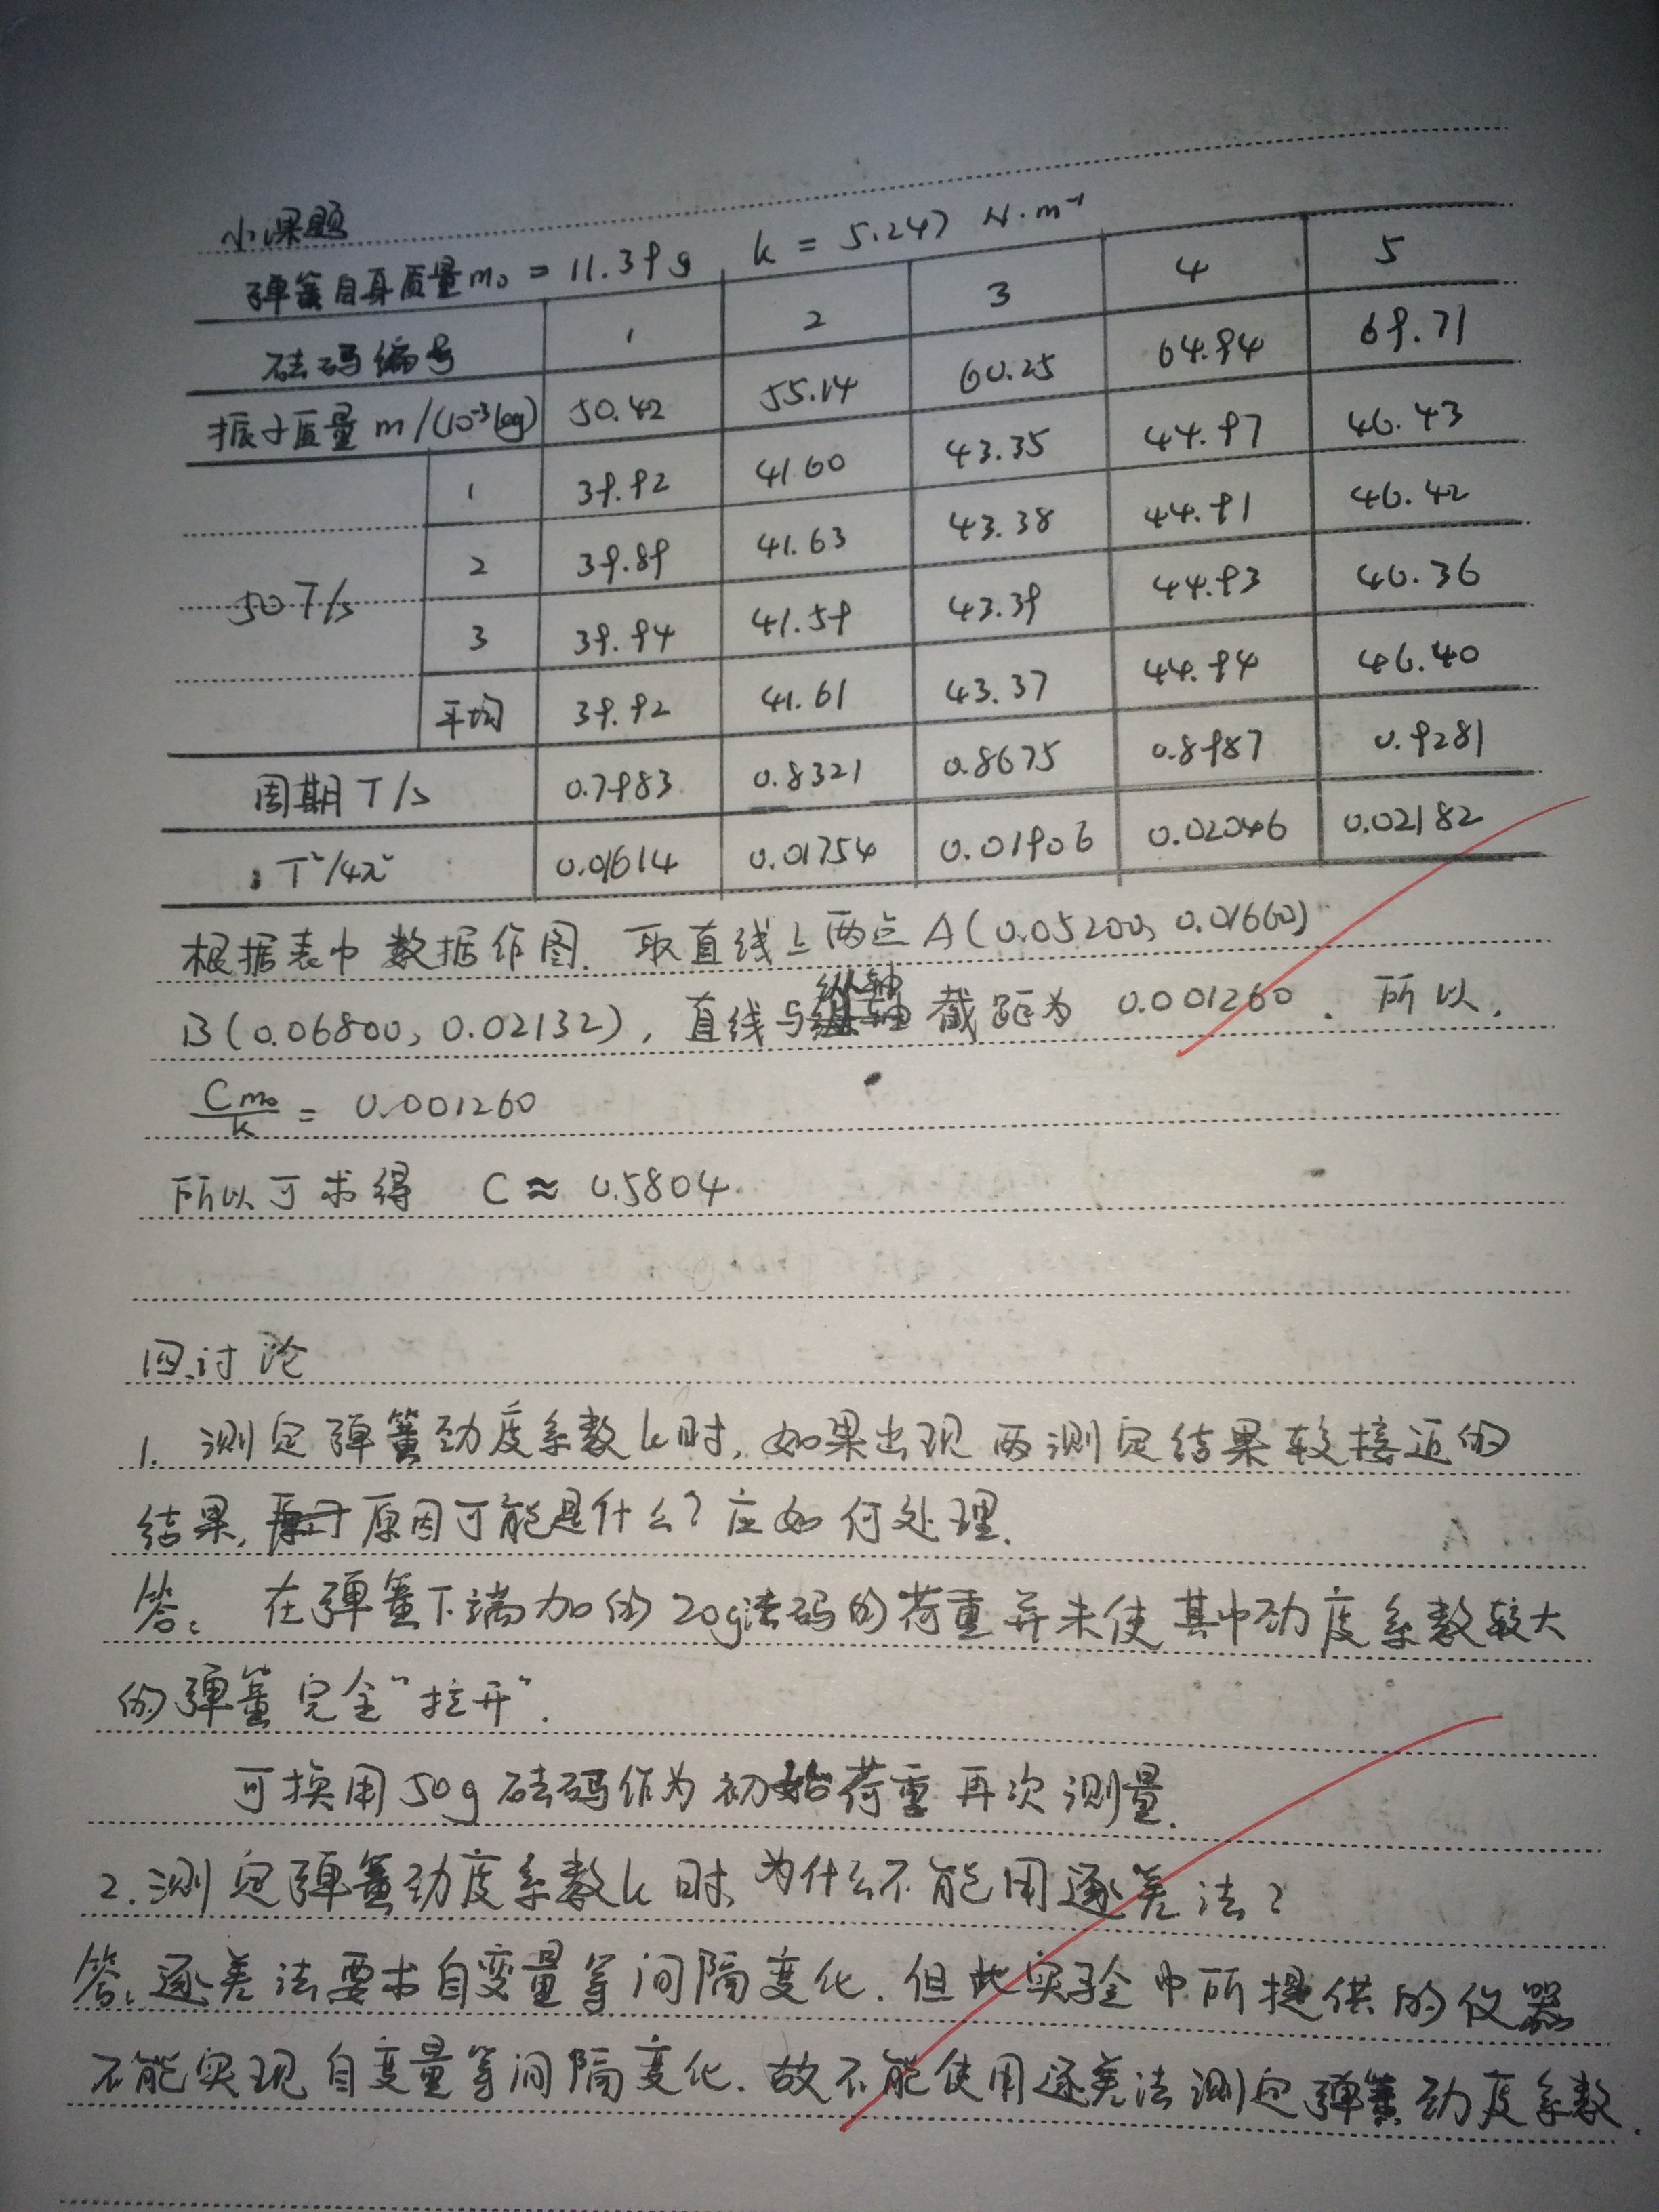 小课题
弹簧自身质量m₀ = 11.39g k = 5.247 N·m⁻¹
砝码编号 1 2 3 4 5
振子质量 m/(10⁻³kg) 50.42 55.14 60.25 64.94 69.71
50T/s 1 39.92 41.60 43.35 44.97 46.43
2 39.89 41.63 43.38 44.91 46.42
3 39.94 41.59 43.39 44.93 46.36
平均 39.92 41.61 43.37 44.94 46.40
周期T/s 0.7983 0.8321 0.8675 0.8987 0.9281
T²/4π² 0.01614 0.01754 0.01906 0.02046 0.02182
根据表中数据作图. 取直线上两点A(0.05200, 0.01660)
B(0.06800, 0.02132), 直线与纵轴截距为 0.001260. 所以,
Cm₀/k = 0.001260
所以可求得 C ≈ 0.5804
四.讨论
1. 测定弹簧劲度系数k时, 如果出现两测定结果较接近的
结果, 原因可能是什么? 应如何处理.
答: 在弹簧下端加的20g砝码的荷重并未使其中劲度系数较大
的弹簧完全"拉开".
可换用50g砝码作为初始荷重再次测量.
2. 测定弹簧劲度系数k时, 为什么不能用逐差法?
答: 逐差法要求自变量等间隔变化. 但此实验中所提供的仪器
不能实现自变量等间隔变化. 故不能使用逐差法测定弹簧劲度系数.